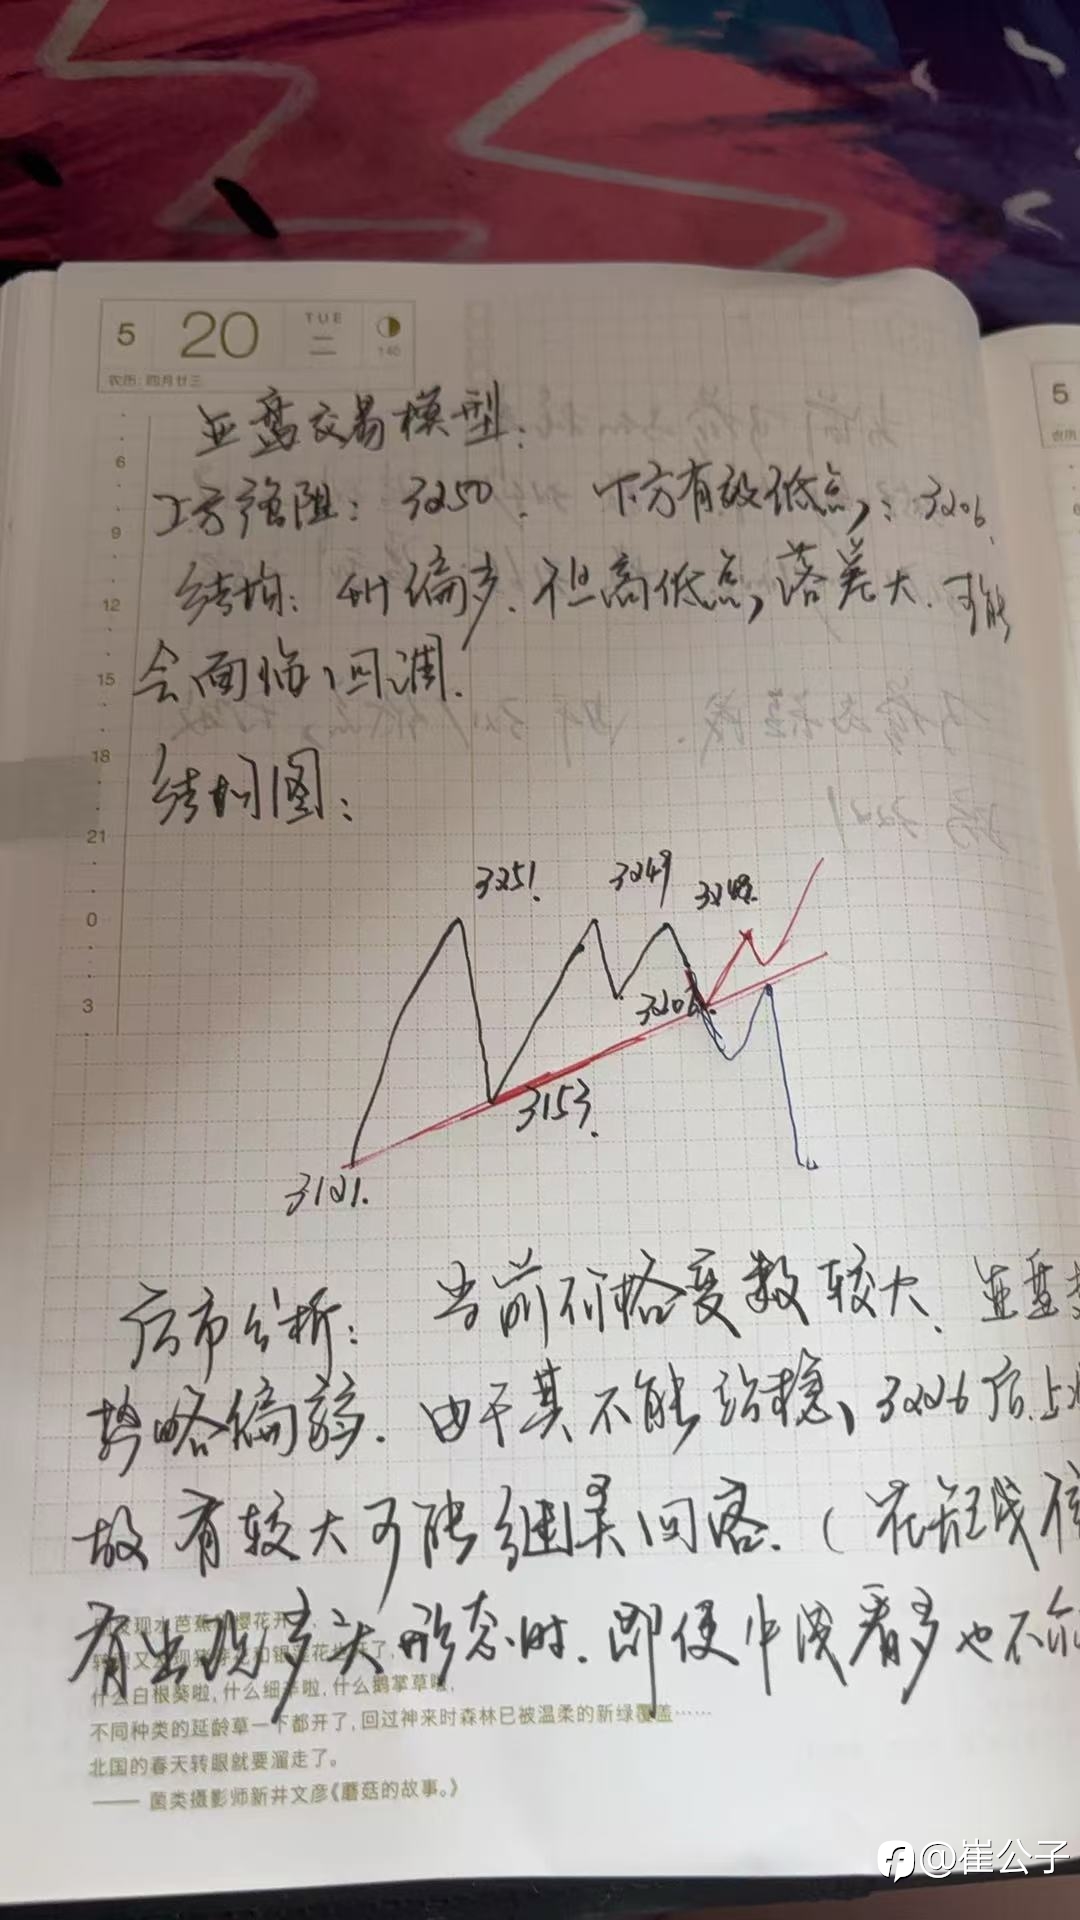 5 20 TUE 二 140
农历:四月廿三
5
农历:
亚盘交易模型:
上方强阻: 3250. 下方有效低点,: 3206.
结构: 4H偏多. 但高低点,落差大. 可能
会面临回调.
结构图:
6
9
12
15
18
21
0
3
3251. 3249 3248.
3206.
3153.
3121.
后市分析: 当前价格变数较大、亚盘
势略偏弱. 由于其不能站稳、3226后.上
故有较大可能继续回落. (在短线
有出现多头形态时. 即便中线看多也不
发现水芭蕉 樱花开
转眼又 现猪牙花和银莲花也开了,
什么白根葵啦,什么细辛啦,什么鹅掌草啦,
不同种类的延龄草一下都开了,回过神来时森林已被温柔的新绿覆盖……
北国的春天转眼就要溜走了。
—— 菌类摄影师新井文彦《蘑菇的故事。》
@崔公子